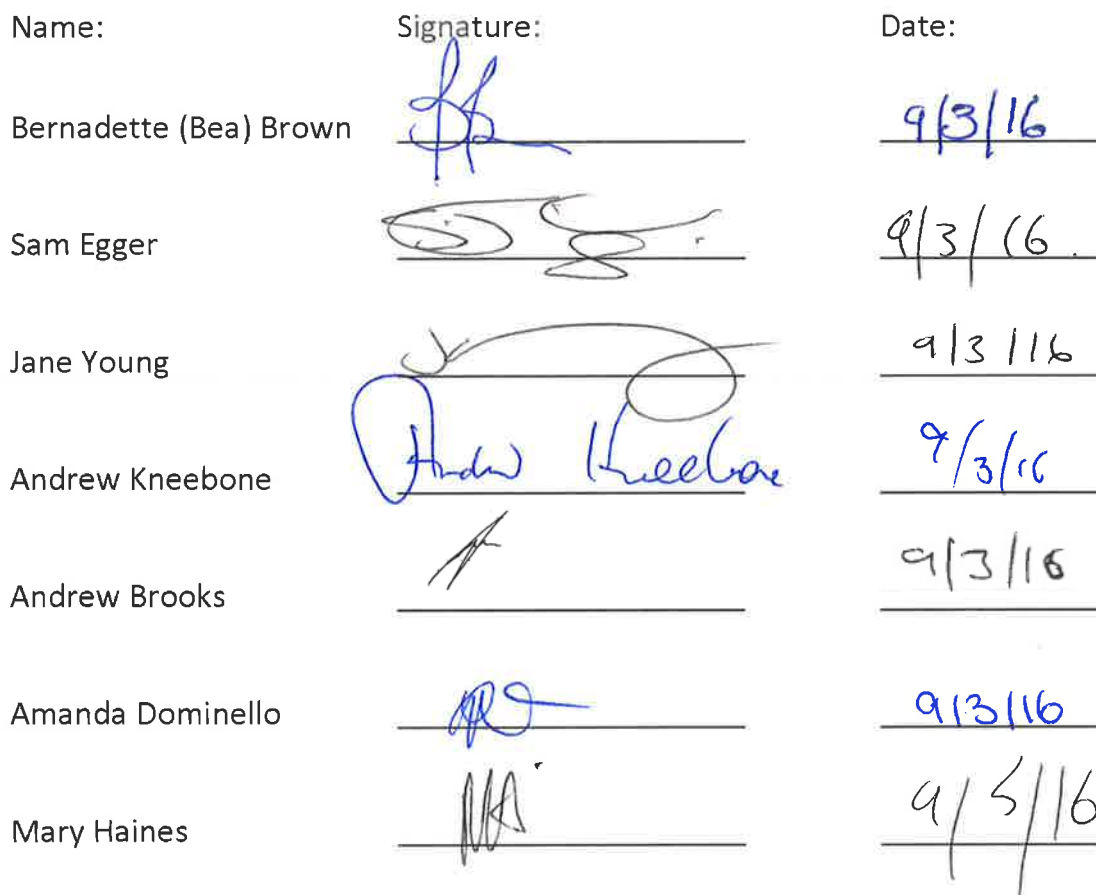 Name: Signature: Date:
Bernadette (Bea) Brown 9/3/16
Sam Egger 9/3/16.
Jane Young 9/3/16
Andrew Kneebone Andrew Kneebone 9/3/16
Andrew Brooks 9/3/16
Amanda Dominello 9/3/16
Mary Haines